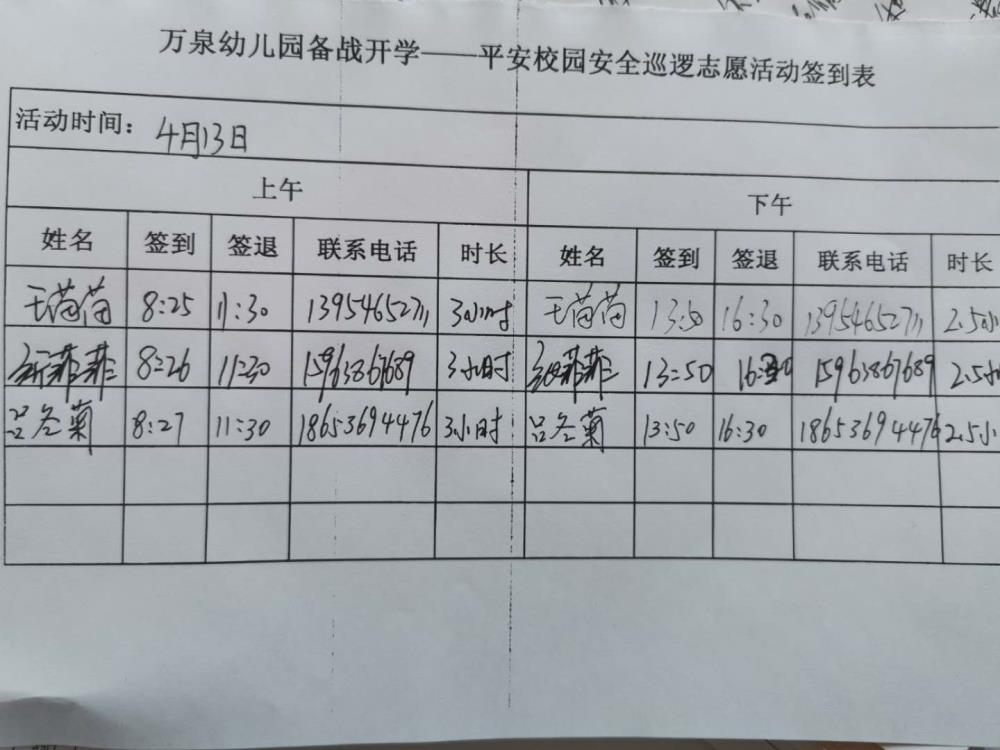 万泉幼儿园备战开学——平安校园安全巡逻志愿活动签到表
活动时间: 4月13日
上午 下午
姓名 签到 签退 联系电话 时长 姓名 签到 签退 联系电话 时长
王苗苗 8:25 11:30 13954652711 3小时 王苗苗 13:50 16:30 13954652711 2.5小
菲菲 8:26 11:30 15963867689 3小时 菲菲 13:50 16:30 15963867689 2.5小
吕冬菊 8:27 11:30 18653694476 3小时 吕冬菊 13:50 16:30 18653694476 2.5小